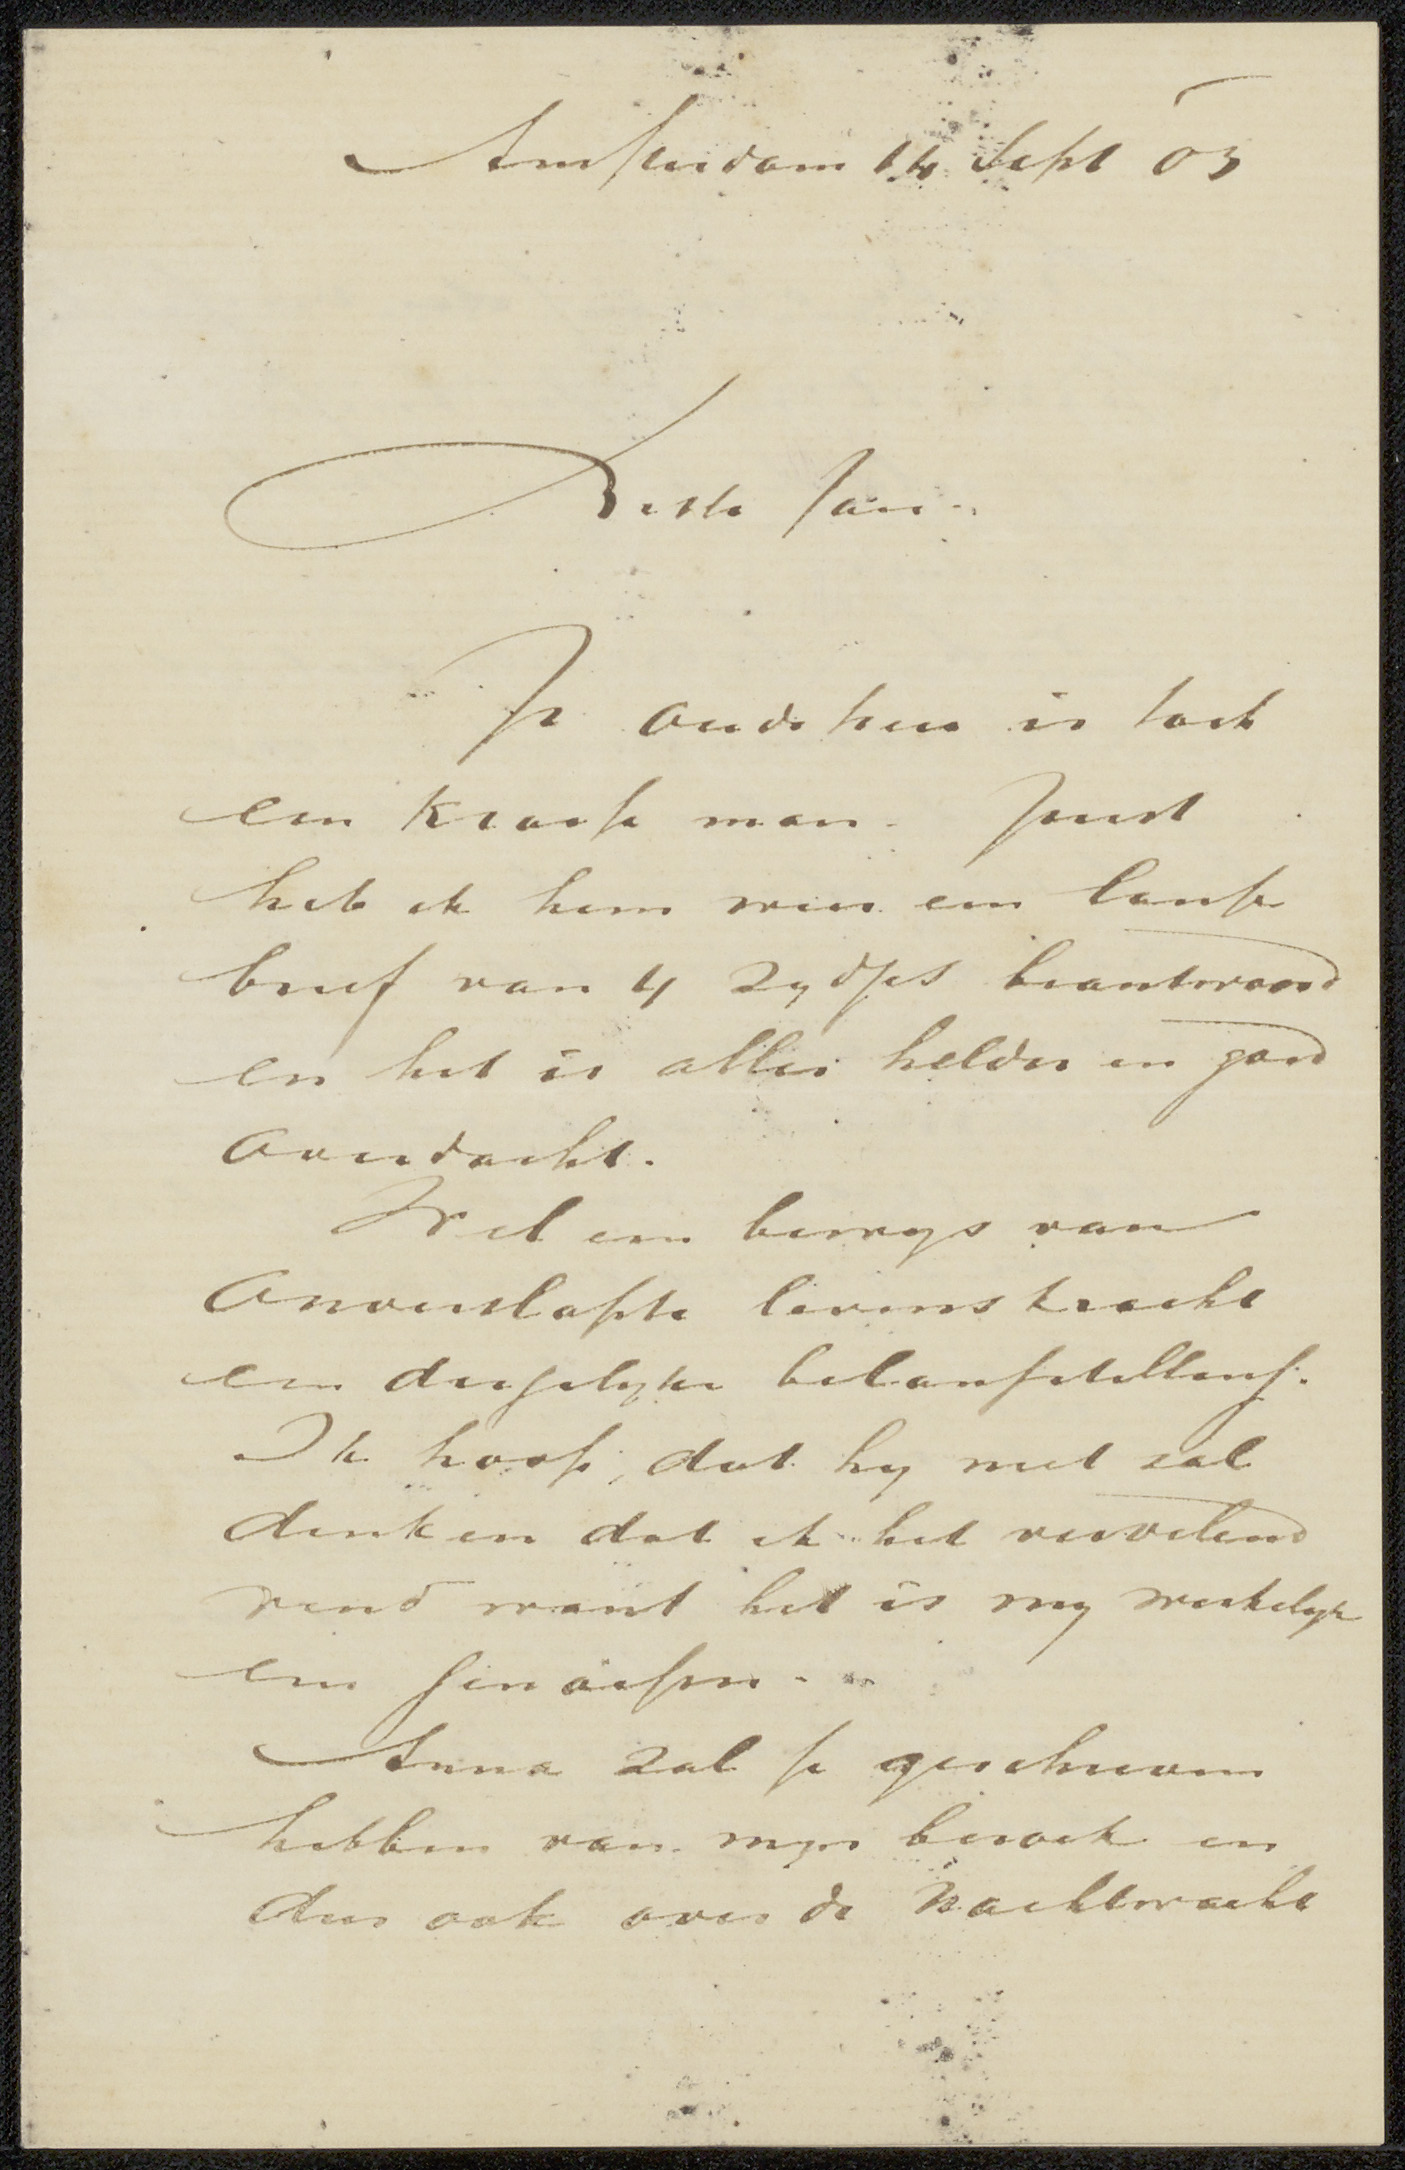 Amsterdam 14 Sept 03
Beste Jan.
Je oude heer is toch
een kraase man. Juist
heb ik hem weer een lange
brief van 4 zydjes beantwoord
en het is alles helder en goed
overdacht.
Wel een bewys van
onverslapte levenskracht
en degelyke belangstelling.
Ik hoop, dat hy niet zal
denken dat ik het vervelend
vind want het is my werkelyk
een genoegen.
Anna zal je geschreven
hebben van myn bezoek en
dus ook over de Nachtwacht